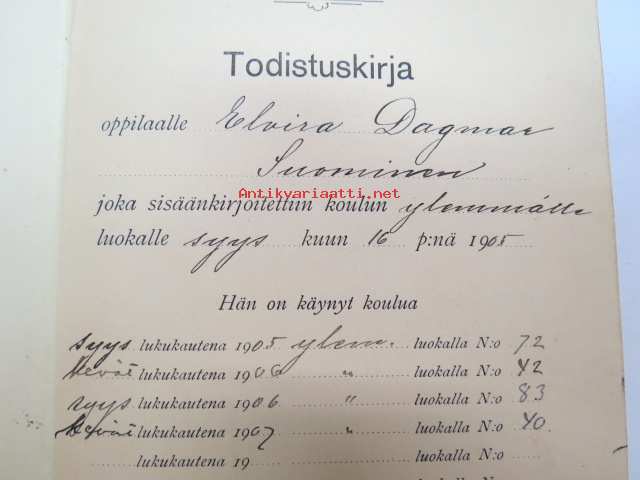 Todistuskirja
oppilaalle Elvira Dagmar
Suominen
Antikvariaatti.net
joka sisäänkirjoitettiin koulun ylemmälle
luokalle syys kuun 16 p:nä 1905
Hän on käynyt koulua
syys lukukautena 1905 ylem. luokalla N:o 72
kevät lukukautena 1906 " luokalla N:o 42
syys lukukautena 1906 " luokalla N:o 83
kevät lukukautena 1907 " luokalla N:o 40.
lukukautena 19 luokalla N:o